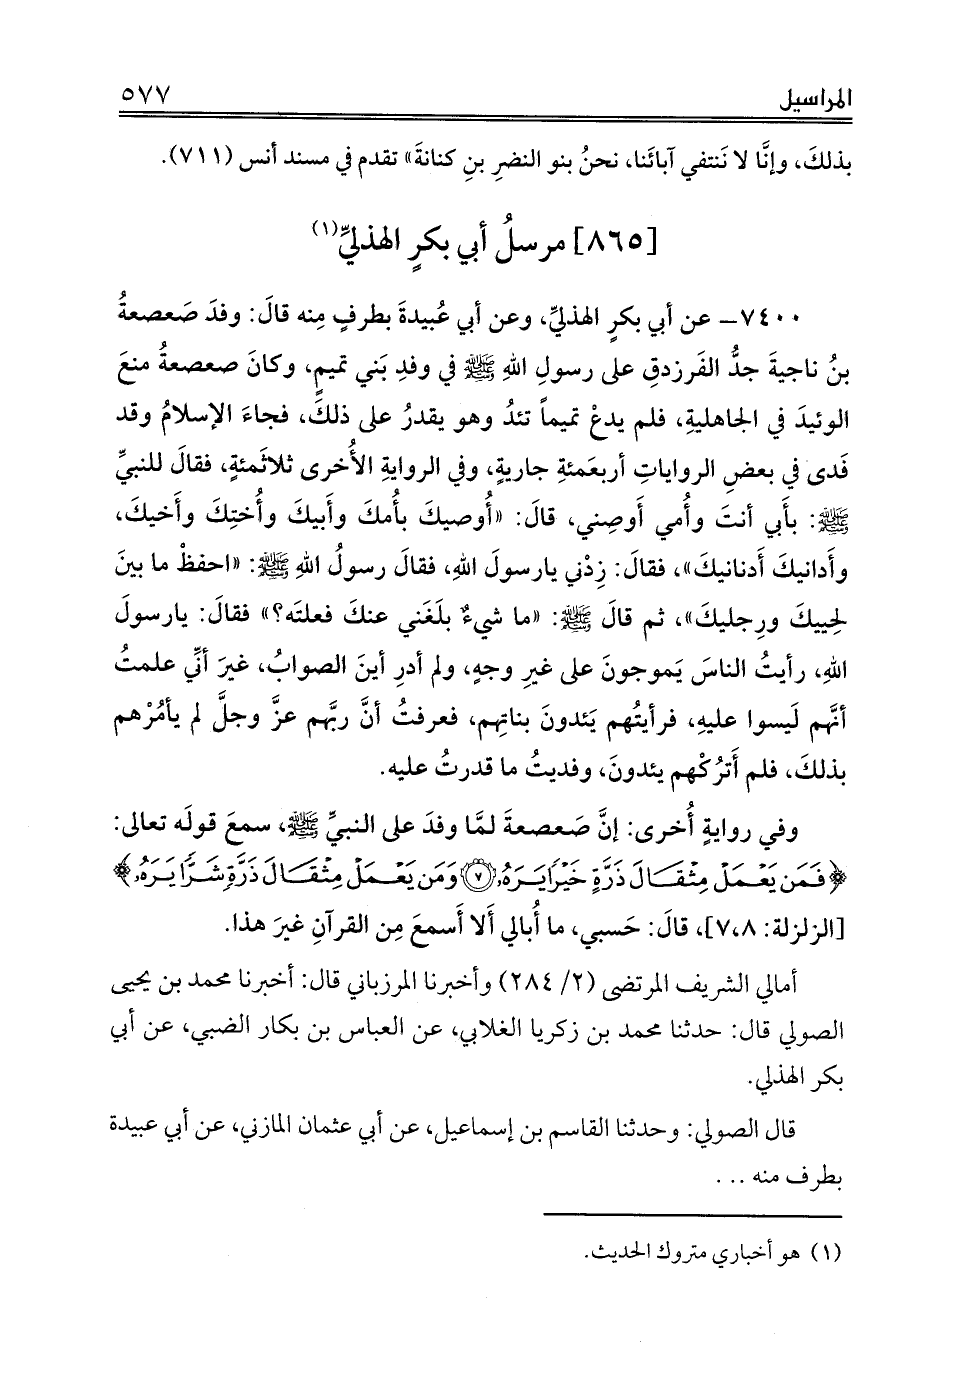 المراسيل ٥٧٧
بذلكَ، وإنَّا لا نَنتفي آبائَنا، نحنُ بنو النضرِ بنِ كنانةَ» تقدم في مسند أنس (٧١١).
[٨٦٥] مرسلُ أبي بكرٍ الهذليِّ(١)
٧٤٠٠- عن أبي بكرٍ الهذليِّ، وعن أبي عُبيدةَ بطرفٍ مِنه قالَ: وفدَ صَعصعةُ
بنُ ناجيةَ جدُّ الفَرزدقِ على رسولِ اللهِ ﷺ في وفدِ بَني تميمٍ، وكانَ صعصعةُ منعَ
الوئيدَ في الجاهليةِ، فلم يدعْ تميماً تئدُ وهو يقدرُ على ذلكَ، فجاءَ الإسلامُ وقد
فَدى في بعضِ الرواياتِ أربعَمئةِ جاريةٍ، وفي الروايةِ الأُخرى ثلاثَمئةٍ، فقالَ للنبيِّ
ﷺ: بأَبي أنتَ وأُمي أَوصِني، قالَ: «أُوصيكَ بأُمكَ وأَبيكَ وأُختِكَ وأَخيكَ،
وأَدانيكَ أَدنانيكَ»، فقالَ: زِدْني يارسولَ اللهِ، فقالَ رسولُ اللهِ ﷺ: «احفظْ ما بينَ
لحييكَ ورِجليكَ»، ثم قالَ ﷺ: «ما شيءٌ بلغَني عنكَ فعلتَه؟» فقالَ: يارسولَ
اللهِ، رأيتُ الناسَ يَموجونَ على غيرِ وجهٍ، ولم أَدرِ أينَ الصوابُ، غيرَ أنِّي علمتُ
أنَّهم لَيسوا عليهِ، فرأيتُهم يَئدونَ بناتِهم، فعرفتُ أنَّ ربَّهم عزَّ وجلَّ لم يأمُرْهم
بذلكَ، فلم أَترُكْهم يئدونَ، وفديتُ ما قدرتُ عليه.
وفي روايةٍ أُخرى: إنَّ صَعصعةَ لمَّا وفدَ على النبيِّ ﷺ، سمعَ قولَه تعالى:
﴿فَمَن يَعْمَلْ مِثْقَالَ ذَرَّةٍ خَيْرًا يَرَهُۥ ۝٧ وَمَن يَعْمَلْ مِثْقَالَ ذَرَّةٍ شَرًّا يَرَهُۥ﴾
[الزلزلة: ٧،٨]، قالَ: حَسبي، ما أُبالي أَلا أَسمعَ مِن القرآنِ غيرَ هذا.
أمالي الشريف المرتضى (٢/ ٢٨٤) وأخبرنا المرزباني قال: أخبرنا محمد بن يحيى
الصولي قال: حدثنا محمد بن زكريا الغلابي، عن العباس بن بكار الضبي، عن أبي
بكر الهذلي.
قال الصولي: وحدثنا القاسم بن إسماعيل، عن أبي عثمان المازني، عن أبي عبيدة
بطرف منه ...
(١) هو أخباري متروك الحديث.